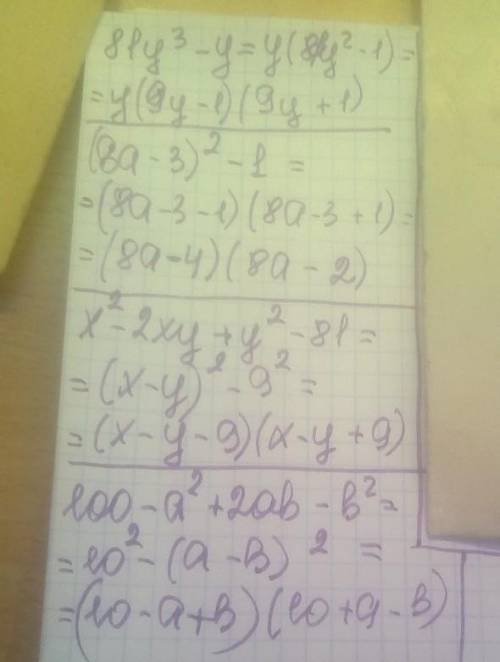 81y³ - y = y(81y² - 1) =
= y(9y - 1)(9y + 1)
(8a - 3)² - 1 =
= (8a - 3 - 1)(8a - 3 + 1) =
= (8a - 4)(8a - 2)
x² - 2xy + y² - 81 =
= (x - y)² - 9² =
= (x - y - 9)(x - y + 9)
100 - a² + 2ab - b² =
= 10² - (a - b)² =
= (10 - a + b)(10 + a - b)